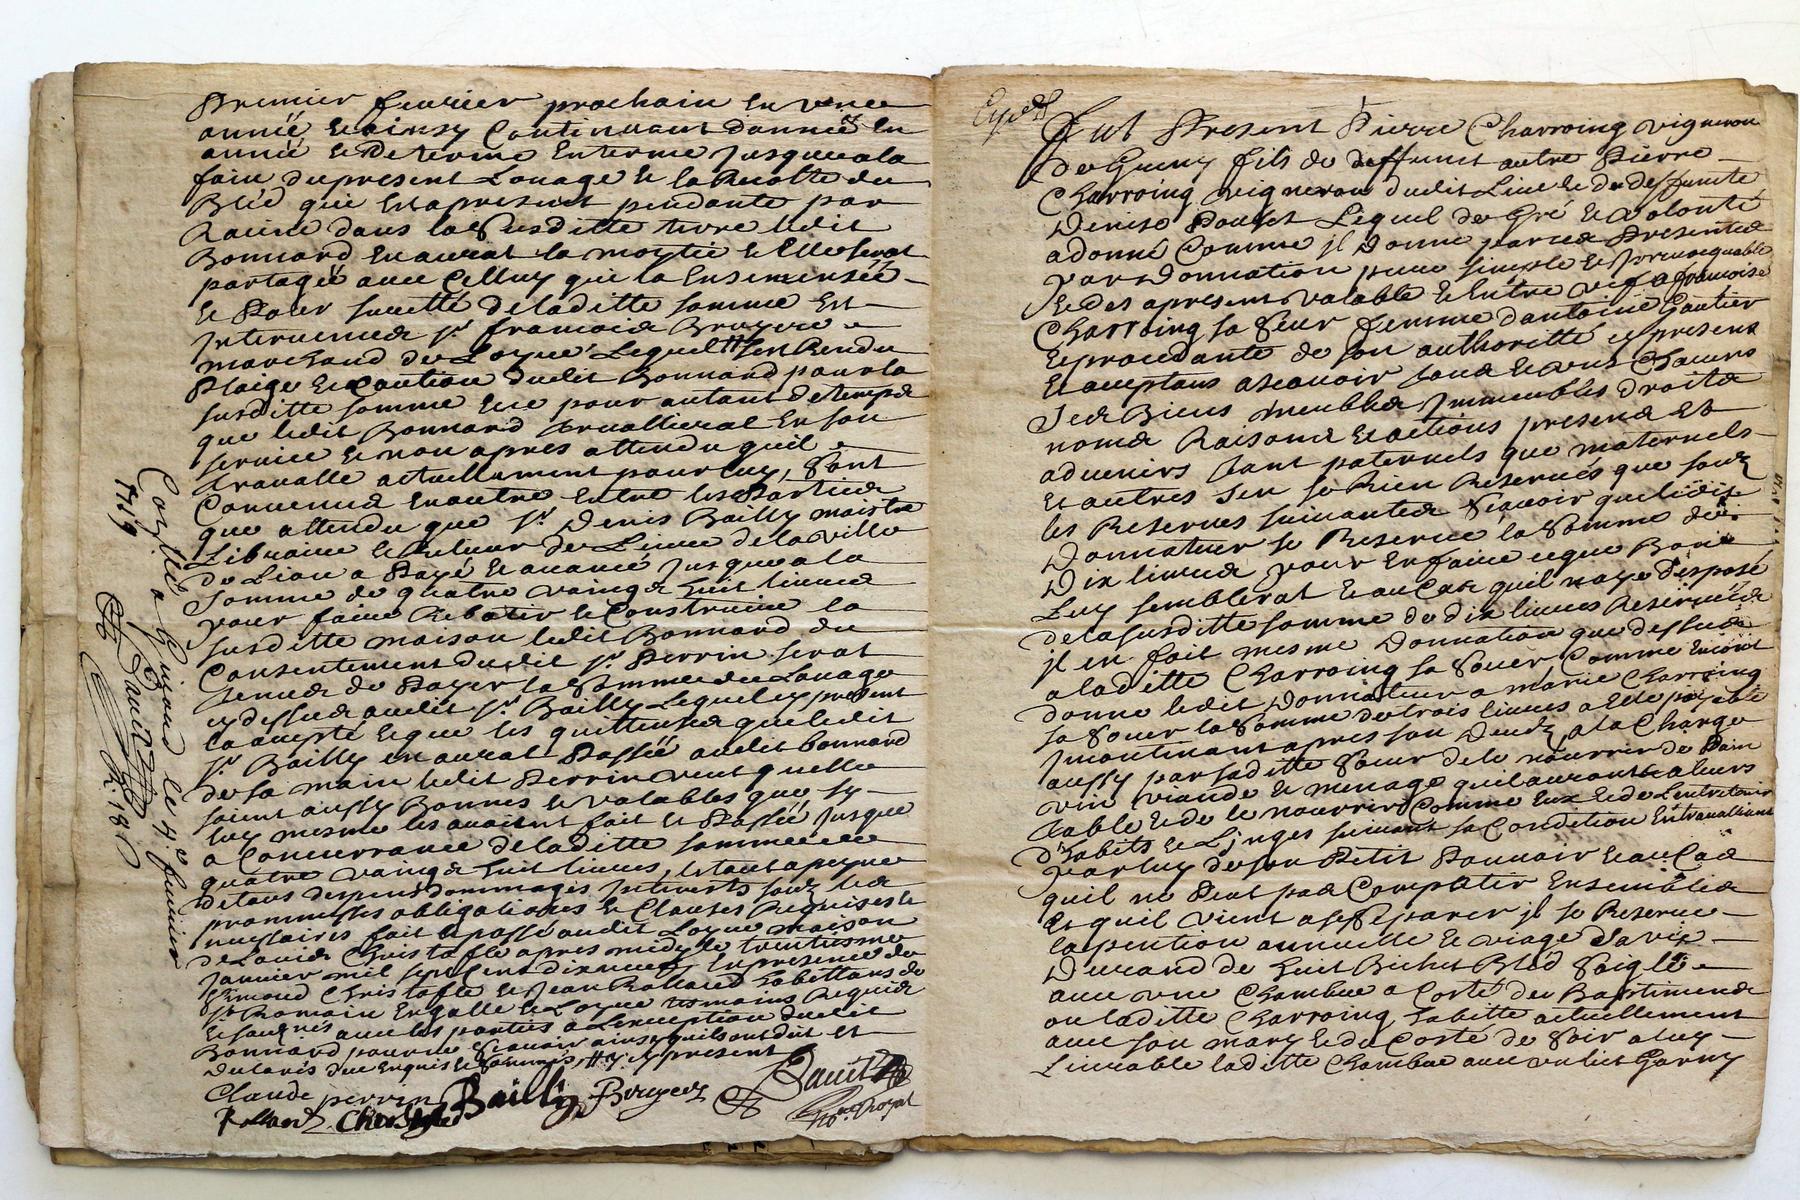 Premier feurier prochain en vnne
année et ainsy Continuant d'année en
année et de terme en terme jusques a la
fain du present Louage et la Recolte du
Bled que est apresent pendante par
Racine dans la susditte terre ledit
Bonnard en aurat la moytie et Elle serat
partagée auec Celluy qui la Ensemensée
et Pour sureté de laditte somme Est
Interuenus sr. francois Bruyere
marchand de Loyue Lequel sest Rendu
Plaige et Caution dudit Bonnard pour la
susditte somme et ce pour autant de temps
que ledit Bonnard trauallierat En son
seruice et non apres attendu quil
trauallie actuellement pour luy, sont
Conuenus en outre entre les Parties
que attendu que sr. Denis Bailly maistre
Libraire et Relieur de Liure de la ville
de Lion a Payé et auance jusques a la
somme de quatre vaingt huit liures
pour faire Rebatir et Construire la
susditte maison ledit Bonnard du
Consentement dudit sr. Perrin serat
tenus de Payer la somme du Louage
cy dessus audit sr. Bailly Lequel cy present
la accepte et que les quittances que ledit
sr. Bailly en aurat Passée audit bonnard
de sa main ledit Perrin veut quelle
soient aussy Bonnes et valables que sy
luy mesme les auoient fait et Passée jusque
a Concurrance de laditte somme de
quatre vaingt huit liures, le tout a peyne
de tous despens dommages interests souz les
prommesses obligations et Clauses Requises et
necessaires fait et passé audit Loyue maison
de Louis Christofle apres midy le trentiesme
Januier mil sept cent dixneuf En presence de
Esmond Christofle et Jean Rolland habittans de
st. Romain En galle et Loyue temoins Requis
et signés auec les parties a L'exception dudit
Bonnard pour ne scauoir ainsy quils ont dit et
declarés de ce enquis et sommés cy present
Claude perrin Bailly Bruyere Dauit
Rolland Christofle no.re Royal
Con.llé a Giuord le 4.e feurier
1719
Dauit
R. 18 s
Exped
Fut Present Pierre Charroing vigneron
de Grigny fils de deffunct autre Pierre
Charroing vigneron dudit Lieu et de deffunte
Denise Lequel de Gré et volonté
a donné Comme jl Donne par ces Presentes
par Donnation pure simple et Jrreuoquable
et des apresent valable et Entre vif a francoise
Charroing sa seur femme d'antoine Gautier
et procedante de son authoritté cy present
et acceptans ascauoir tous et vns Chacuns
ses Biens meubles Jmmeubles droits
noms Raisons et actions presens et
aduenirs tant paternels que maternels
et autres sen se Rien Reserues que souz
les Reserues suiuantes scauoir que ledit
Donnateur se Reserue la somme de
Dix liures pour En faire ce que Bon
Luy semblerat et au Cas qu'il naye disposé
de la susditte somme de dix liures Reseruée
jl en fait mesme Donnation que dessus
a laditte Charroing sa Seur Comme Encore
donne ledit Donnateur a marie Charroing
sa Seur la somme de trois liures a Elle payable
Jncontinant apres son Decedz, a la Charge
aussy par saditte Seur de le nourrir de Pain
vin viande et menage quil auront a leurs
table et de le nourrir Comme Eux et de L'entretenir
d'habits et Linges suiuant sa Condition En trauallant
par luy de son Petit Pouuoir et au Cas
quil ne Peut pas Compatir Ensembles
Et quil vient a se separer jl se Reserue
la pention annuelle et viage sa vie
Durand de huit Bichet Bled Soigle
auec vne Chambre a Costé des Bastimens
ou laditte Charroing habitte actuellement
auec son mary et du Costé de Soir a luy
Liurable laditte Chambre auec vn lict Garny